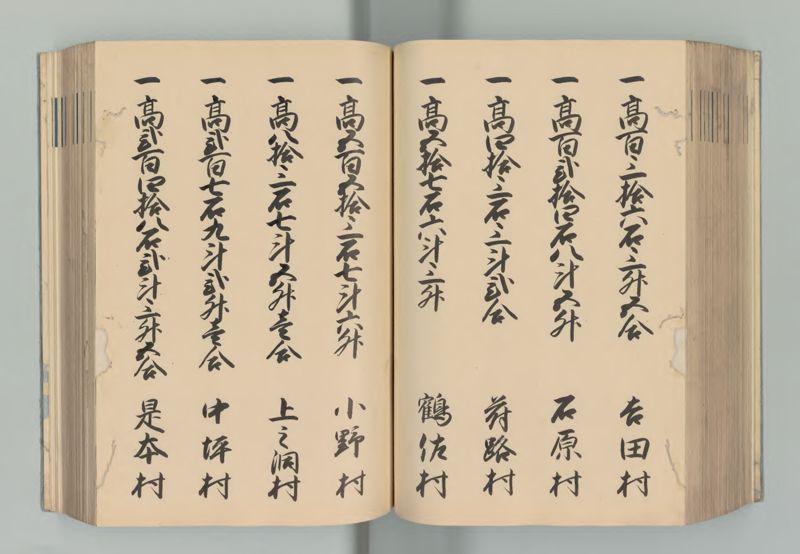 一高百三拾六石三升五合 吉田村
一高百弐拾四石八斗五升 石原村
一高四拾三石三斗弐合 蕗路村
一高五拾七石六斗三升 鶴佐村
一高五百五拾三石七斗六升 小野村
一高八拾三石七斗五升壱合 上之洞村
一高弐百七石九斗弐升壱合 中坪村
一高弐百四拾八石弐斗三升五合 是本村